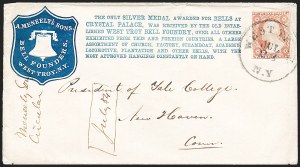 A. MENEELY'S SONS,
BELL
FOUNDERS,
WEST TROY, N.Y.
THE ONLY SILVER MEDAL AWARDED FOR BELLS AT
CRYSTAL PALACE, WAS RECEIVED BY THE OLD ESTAB-
LISHED WEST TROY BELL FOUNDRY, OVER ALL OTHERS
EXHIBITED FROM THIS AND FOREIGN COUNTRIES. A LARGE
ASSORTMENT OF CHURCH, FACTORY, STEAMBOAT, ACADEMY,
LOCOMOTIVE, PLANTATION AND OTHER BELLS, WITH THE
MOST APPROVED HANGINGS CONSTANTLY ON HAND.
WEST
JUL
N.Y.
Circular
July 54
President of Yale College
New Haven
Conn